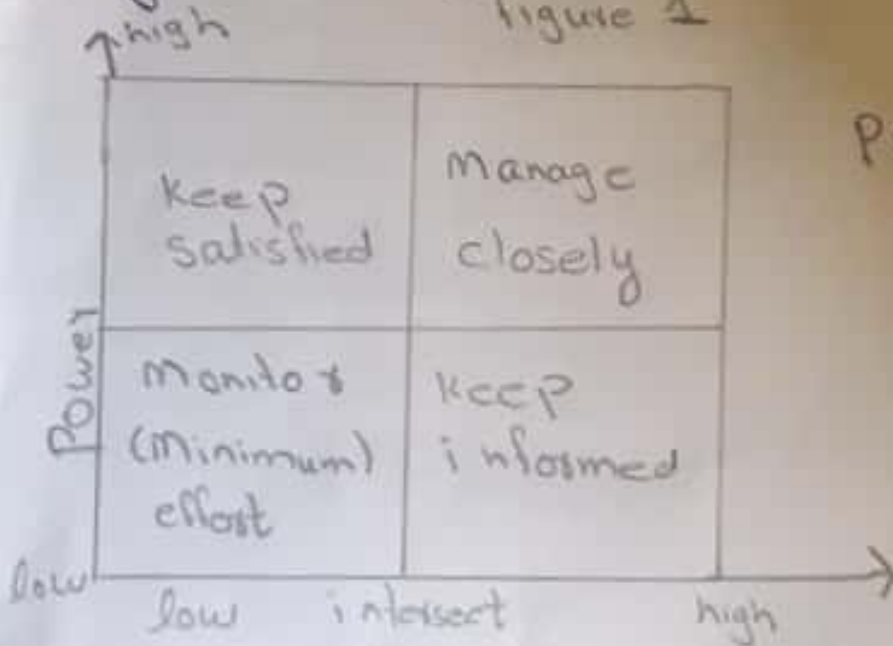 figure 1
high
P
Keep
satisfied
Manage
closely
Power
Monitor
(Minimum)
effort
Keep
informed
low
low intersect high